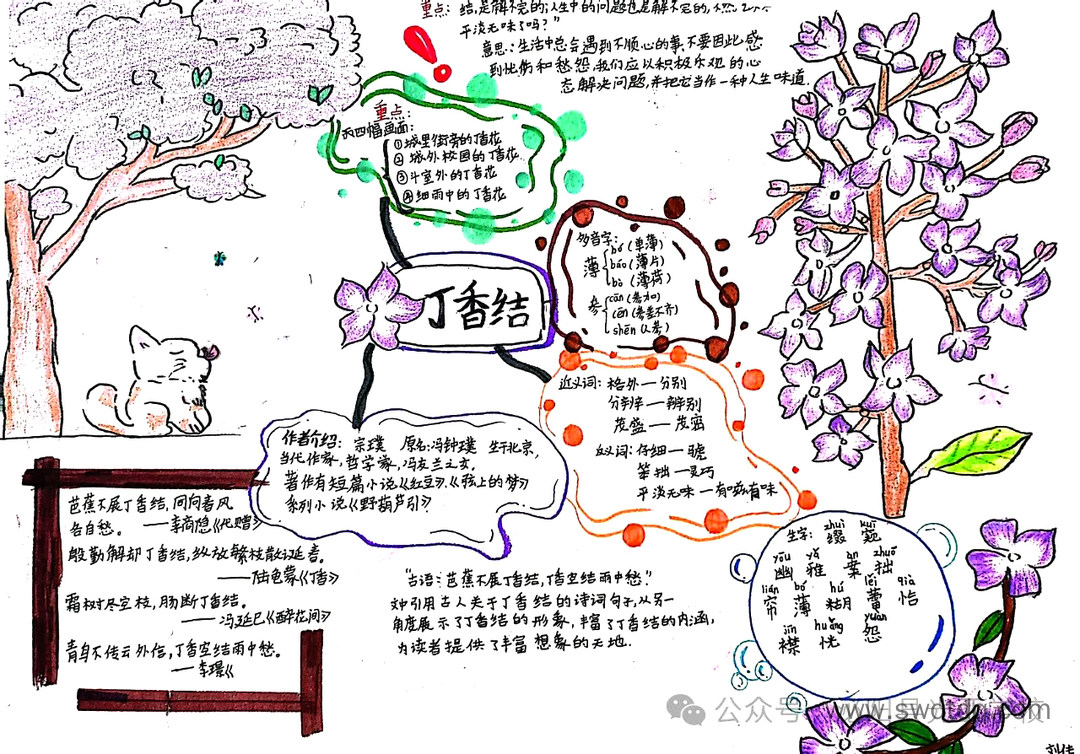 重点：结，是解不完的；人生中的问题也是解不完的，不然，
平淡无味了吗？”
意思：生活中总会遇到不顺心的事，不要因此感
到忧伤和愁怨，我们应以积极乐观的心
态解决问题，并把它当作一种人生味道
重点：
四幅画面：
①城里街旁的丁香花
②城外校园的丁香花
③斗室外的丁香花
④细雨中的丁香花
丁香结
多音字：
薄
bó（单薄）
báo（薄片）
bò（薄荷）
参
cān（参加）
cēn（参差不齐）
shēn（人参）
近义词：格外—分别
分辨—辨别
茂盛—茂密
反义词：仔细—
笨拙—灵巧
平淡无味—有滋有味
作者介绍：宗璞 原名：冯钟璞 生于北京，
当代作家，哲学家，冯友兰之女。
著作有短篇小说《红豆》、《弦上的梦》
系列小说《野葫芦引》
芭蕉不展丁香结，同向春风
各自愁。——李商隐《代赠》
殷勤解却丁香结，纵放繁枝散诞春。
——陆龟蒙《丁香》
霜树尽空枝，肠断丁香结。
——冯延巳《醉花间》
青鸟不传云外信，丁香空结雨中愁。
——李璟《
“古语：芭蕉不展丁香结，丁香空结雨中愁”
文中引用古人关于丁香结的诗词句子，从另一
角度展示了丁香结的形象，丰富了丁香结的内涵，
为读者提供了丰富想象的天地.
zhuì kuī
生字：缀 窥
yōu yǎ àn zhuō
幽 雅 案 拙
lián bó hú lěi qià
帘 薄 糊 蕾 恰
jīn huǎng yuàn
襟 恍 怨
公众号
www.swdtdp.com